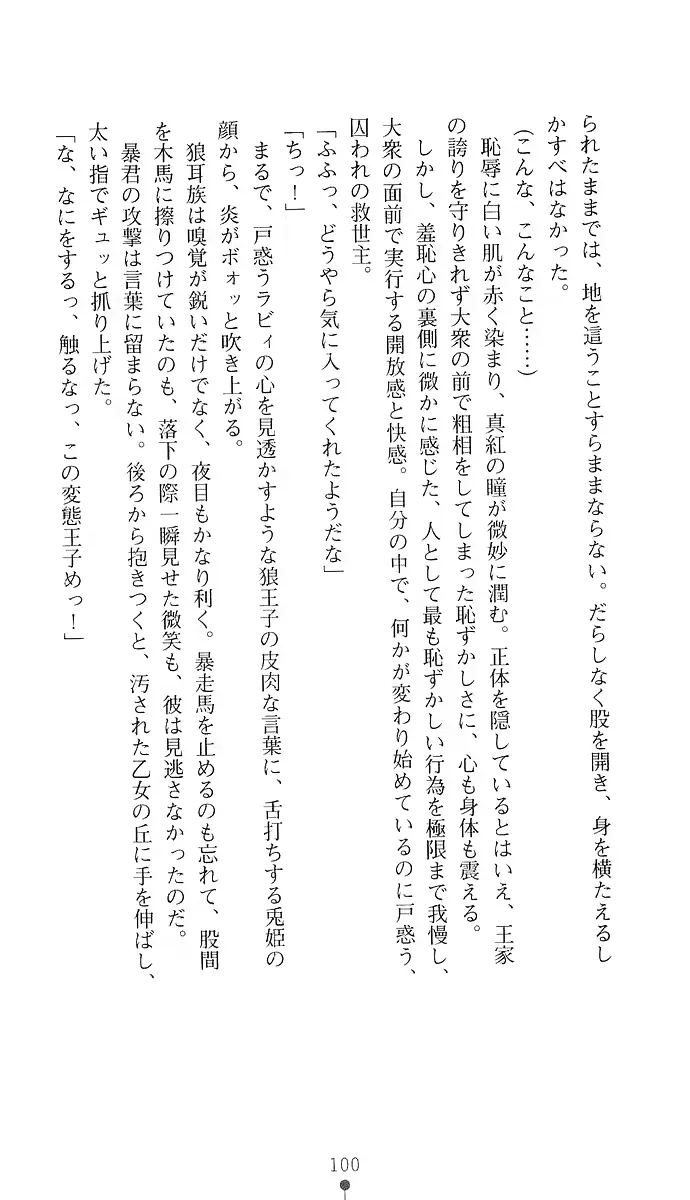 られたままでは、地を這うことすらままならない。だらしなく股を開き、身を横たえるし
かすべはなかった。
(こんな、こんなこと……)
恥辱に白い肌が赤く染まり、真紅の瞳が微妙に潤む。正体を隠しているとはいえ、王家
の誇りを守りきれず大衆の前で粗相をしてしまった恥ずかしさに、心も身体も震える。
しかし、羞恥心の裏側に微かに感じた、人として最も恥ずかしい行為を極限まで我慢し、
大衆の面前で実行する開放感と快感。自分の中で、何かが変わり始めているのに戸惑う、
囚われの救世主。
「ふふっ、どうやら気に入ってくれたようだな」
「ちっ！」
まるで、戸惑うラビィの心を見透かすような狼王子の皮肉な言葉に、舌打ちする兎姫の
顔から、炎がボォッと吹き上がる。
狼耳族は嗅覚が鋭いだけでなく、夜目もかなり利く。暴走馬を止めるのも忘れて、股間
を木馬に擦りつけていたのも、落下の際一瞬見せた微笑も、彼は見逃さなかったのだ。
暴君の攻撃は言葉に留まらない。後ろから抱きつくと、汚された乙女の丘に手を伸ばし、
太い指でギュッと抓り上げた。
「な、なにをするっ、触るなっ、この変態王子めっ！」
100